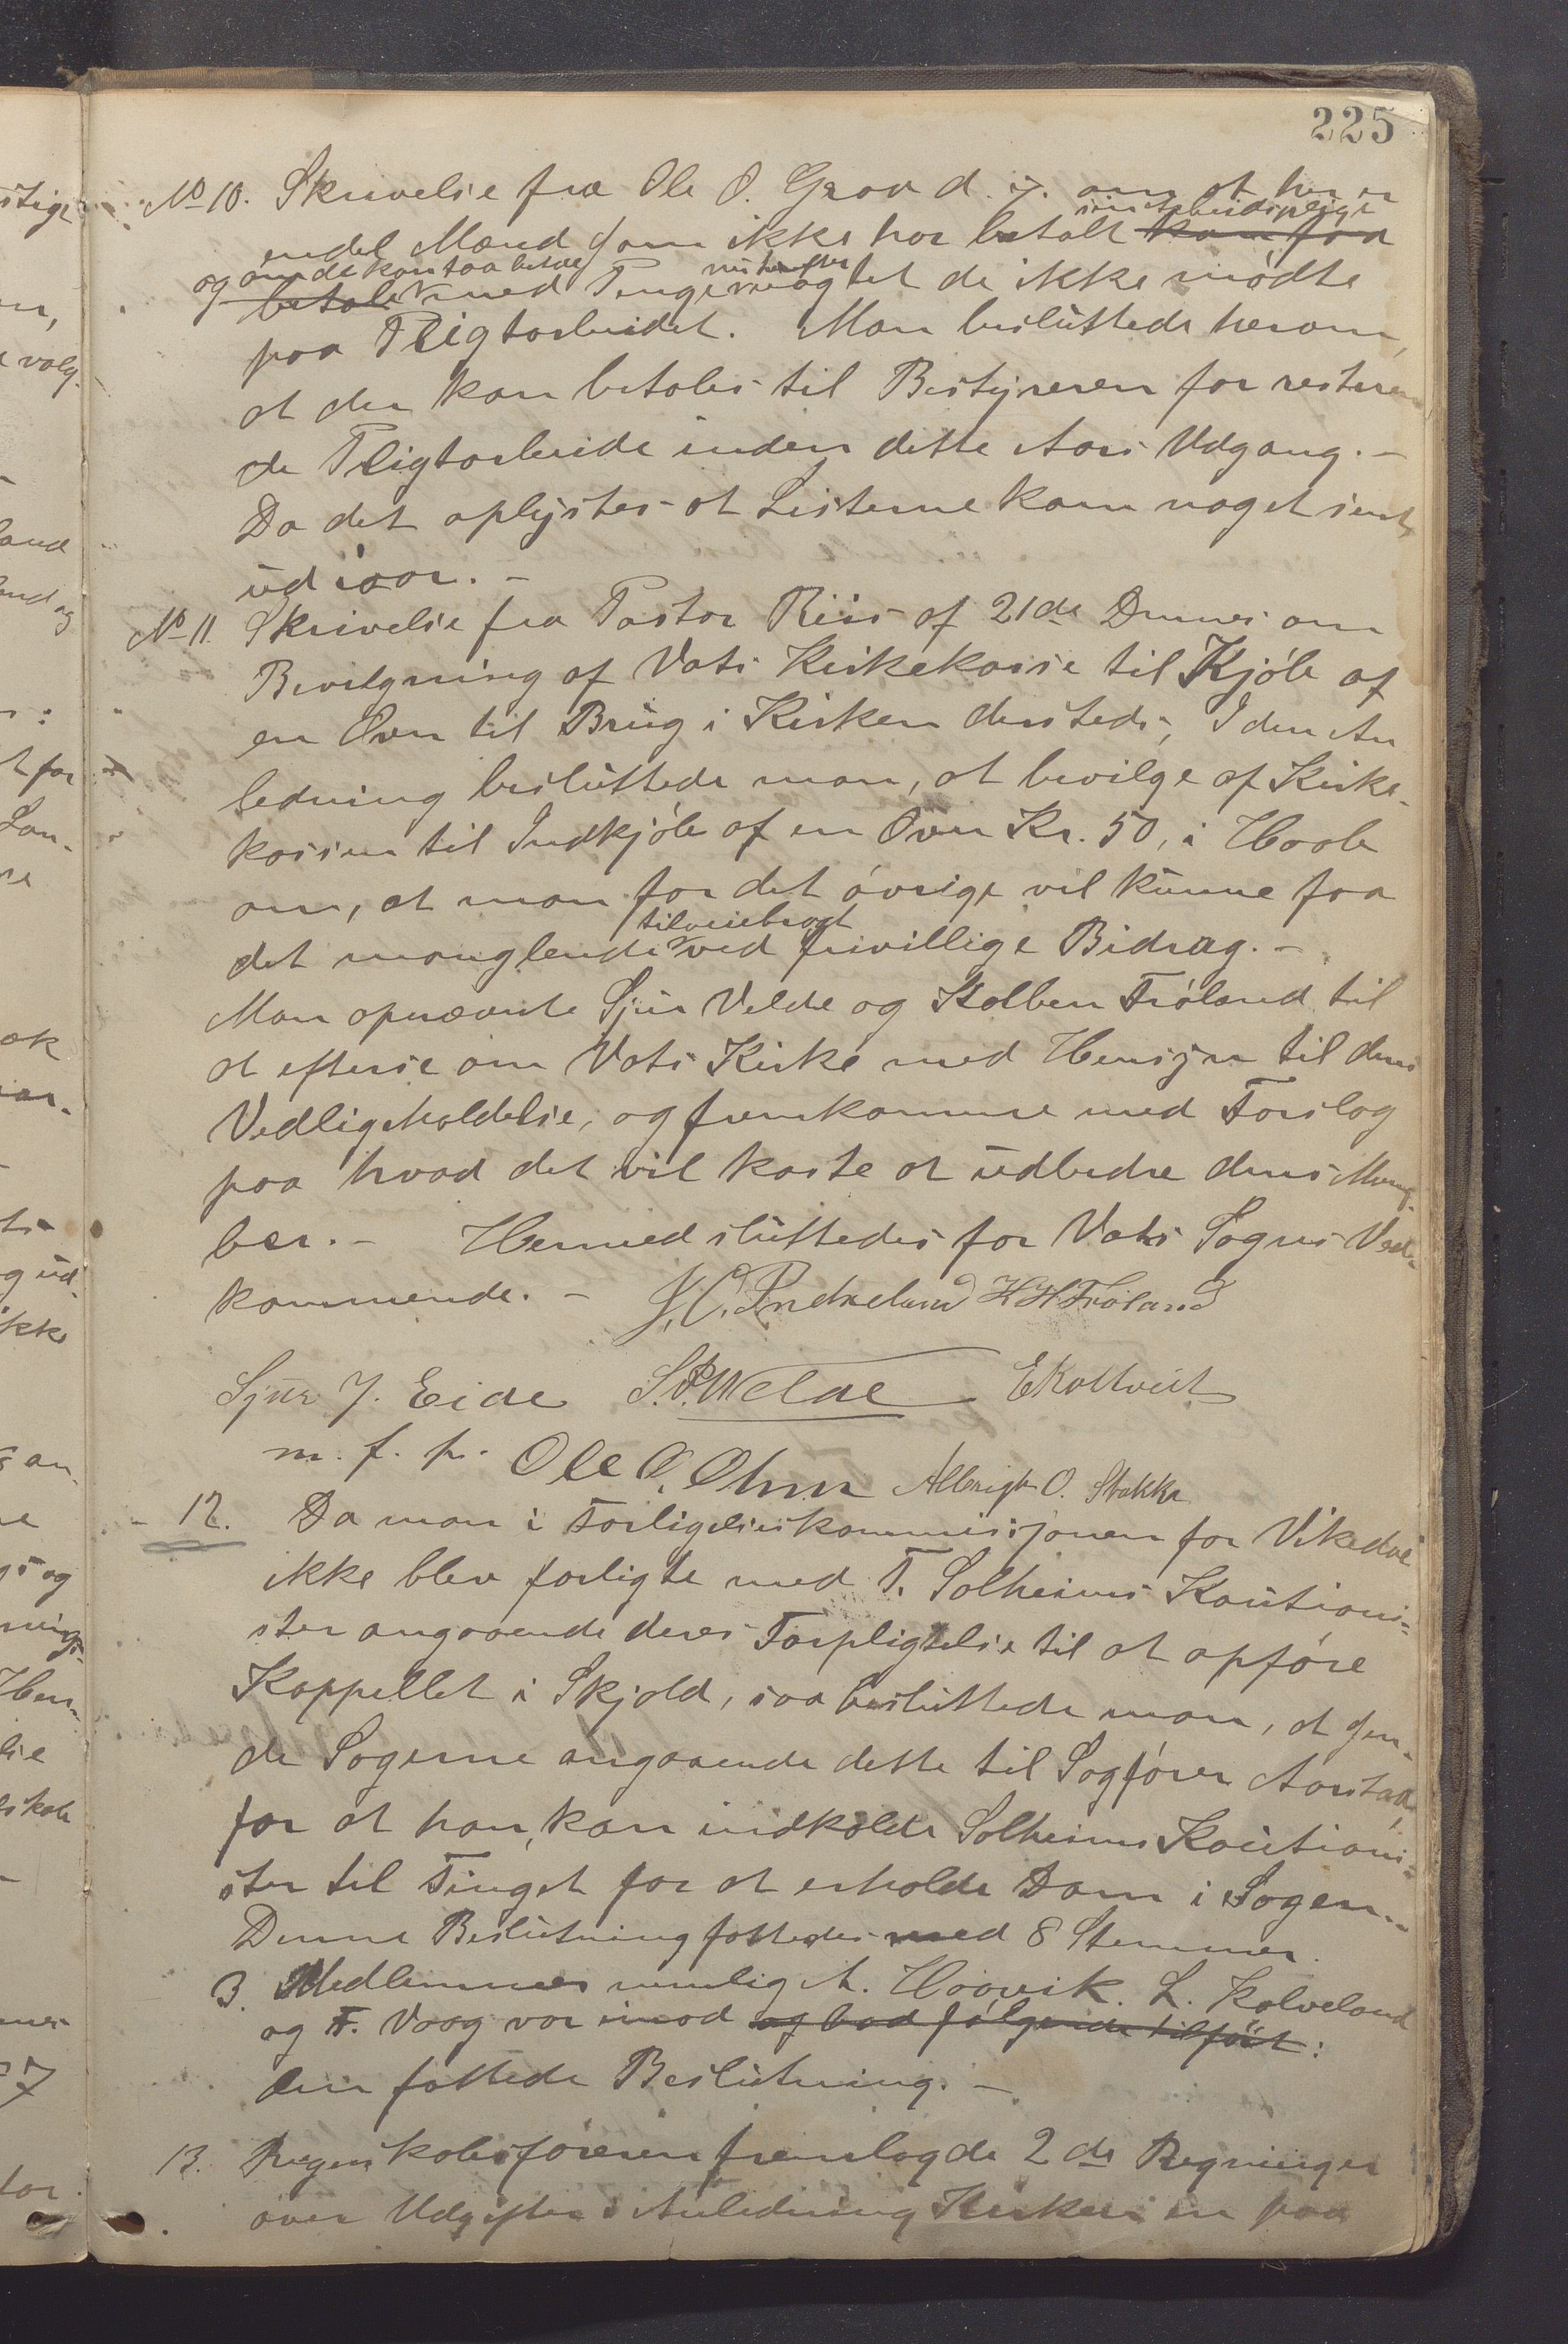 225
No 10. Skrivelse fra Ole O. Grova d. 7. om at her er
endel Mænd som ikke har betalt kan faa sin Arbeidspligt
og om de kan faa betale betale med Penge nu uagtet de ikke mødte
paa Pligtarbeidet. Man besluttede herom,
at der kan betales til Bestyreren for resteren
de Pligtarbeide inden dette Aars Udgang. –
Da det oplystes at Listerne kom noget sent
ud iaar. –
No 11. Skrivelse fra Pastor Riis af 21de Dennes om
Bevilgning af Vats Kirkekasse til Kjøb af
en Ovn til Brug i Kirken dersteds, I den An
ledning besluttede man, at bevilge af Kirke-
kassen til Indkjøb af en Ovn Kr. 50, i Haab
om, at man for det øvrige vil kunne faa
det manglende tilveiebragt ved frivillige Bidrag. –
Man opnævnte Sjur Velde og Kolben Frøland til
at efterse om Vats Kirke med Hensyn til dens
Vedligeholdelse, og fremkomme med Forslag
paa hvad det vil koste at udbedre dens Mang-
ler. – Hermed sluttedes for Vats Sogns Ved-
kommende. – J. O. Indrelund H H Frøland
Sjur J. Eide S. P. Welde E Kaltveit
m. f. p. Ole O. Ohm Albrigt O. Stakke
12. Da man i Forligelseskommissjonen for Vikedal
ikke blev forligte med T. Solheims Kautioni-
ster angaaende deres Forpligtelse til at opføre
Kappellet i Skjold, saa besluttede man, at sen-
de Sagerne angaaende dette til Sagfører Aarstad,
for at han kan indkalde Solheims Kautioni-
ster til Tinget for at erholde Dom i Sagen. –
Denne Beslutning fattedes med 8 Stemmer.
3. Medlemmer nemlig A. Haavik. L. Kalveland
og F. Vaag var imod og bad følgende tilført:
den fattede Beslutning. –
13. Regnskabsføreren fremlagde 2de Regninger
over Udgifter i Anledning Kirken en paa